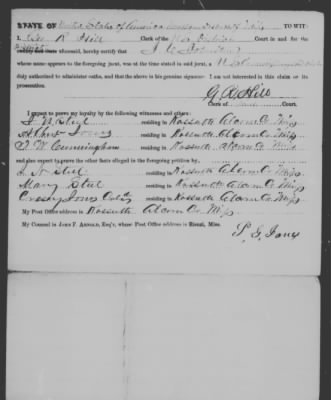 STATE OF United States of America TO WIT:
I, Geo R Hill Clerk of the U S District Court in and for the
District and State aforesaid, hereby certify that
whose name appears to the foregoing jurat, was at the time stated in said jurat, a U S Commissioner
duly authorized to administer oaths, and that the above is his genuine signature. I am not interested in this claim or its
prosecution.
G. R. Hill
Clerk of said Court.
I expect to prove my loyalty by the following witnesses and others:
J. N. Steel residing in Kossuth Alcorn Co Miss
residing in Kossuth Alcorn Co Miss
Cunningham residing in Kossuth Alcorn Co Miss
and also expect to prove the other facts alleged in the foregoing petition by
J. N. Steel residing in Kossuth Alcorn Co Miss
Mary Steel residing in Kossuth Alcorn Co Miss
residing in Kossuth Alcorn Co Miss
My Post Office address is Kossuth Alcorn Co Miss
My Counsel is JOHN F. ARNOLD, Esq'r, whose Post Office address is Rienzi, Miss.
S. G. Jones